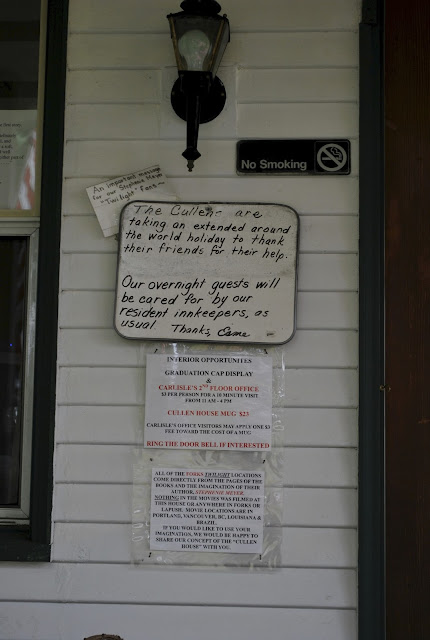 No Smoking
An important message
for our Stephenie Meyer
~Twilight~ Fans~
The Cullens are
taking an extended around
the world holiday to thank
their friends for their help.
Our overnight guests will
be cared for by our
resident innkeepers, as
usual. Thanks, Esme
INTERIOR OPPORTUNITES
GRADUATION CAP DISPLAY
&
CARLISLE'S 2ND FLOOR OFFICE
$3 PER PERSON FOR A 10 MINUTE VISIT
FROM 11 AM - 4 PM
CULLEN HOUSE MUG $23
CARLISLE'S OFFICE VISITORS MAY APPLY ONE $3
FEE TOWARD THE COST OF A MUG
RING THE DOOR BELL IF INTERESTED
ALL OF THE FORKS TWILIGHT LOCATIONS
COME DIRECTLY FROM THE PAGES OF THE
BOOKS AND THE IMAGINATION OF THEIR
AUTHOR, STEPHENIE MEYER.
NOTHING IN THE MOVIES WAS FILMED AT
THIS HOUSE OR ANYWHERE IN FORKS OR
LAPUSH. MOVIE LOCATIONS ARE IN
PORTLAND, VANCOUVER, BC, LOUISIANA &
BRAZIL.
IF YOU WOULD LIKE TO USE YOUR
IMAGINATION, WE WOULD BE HAPPY TO
SHARE OUR CONCEPT OF THE "CULLEN
HOUSE" WITH YOU.